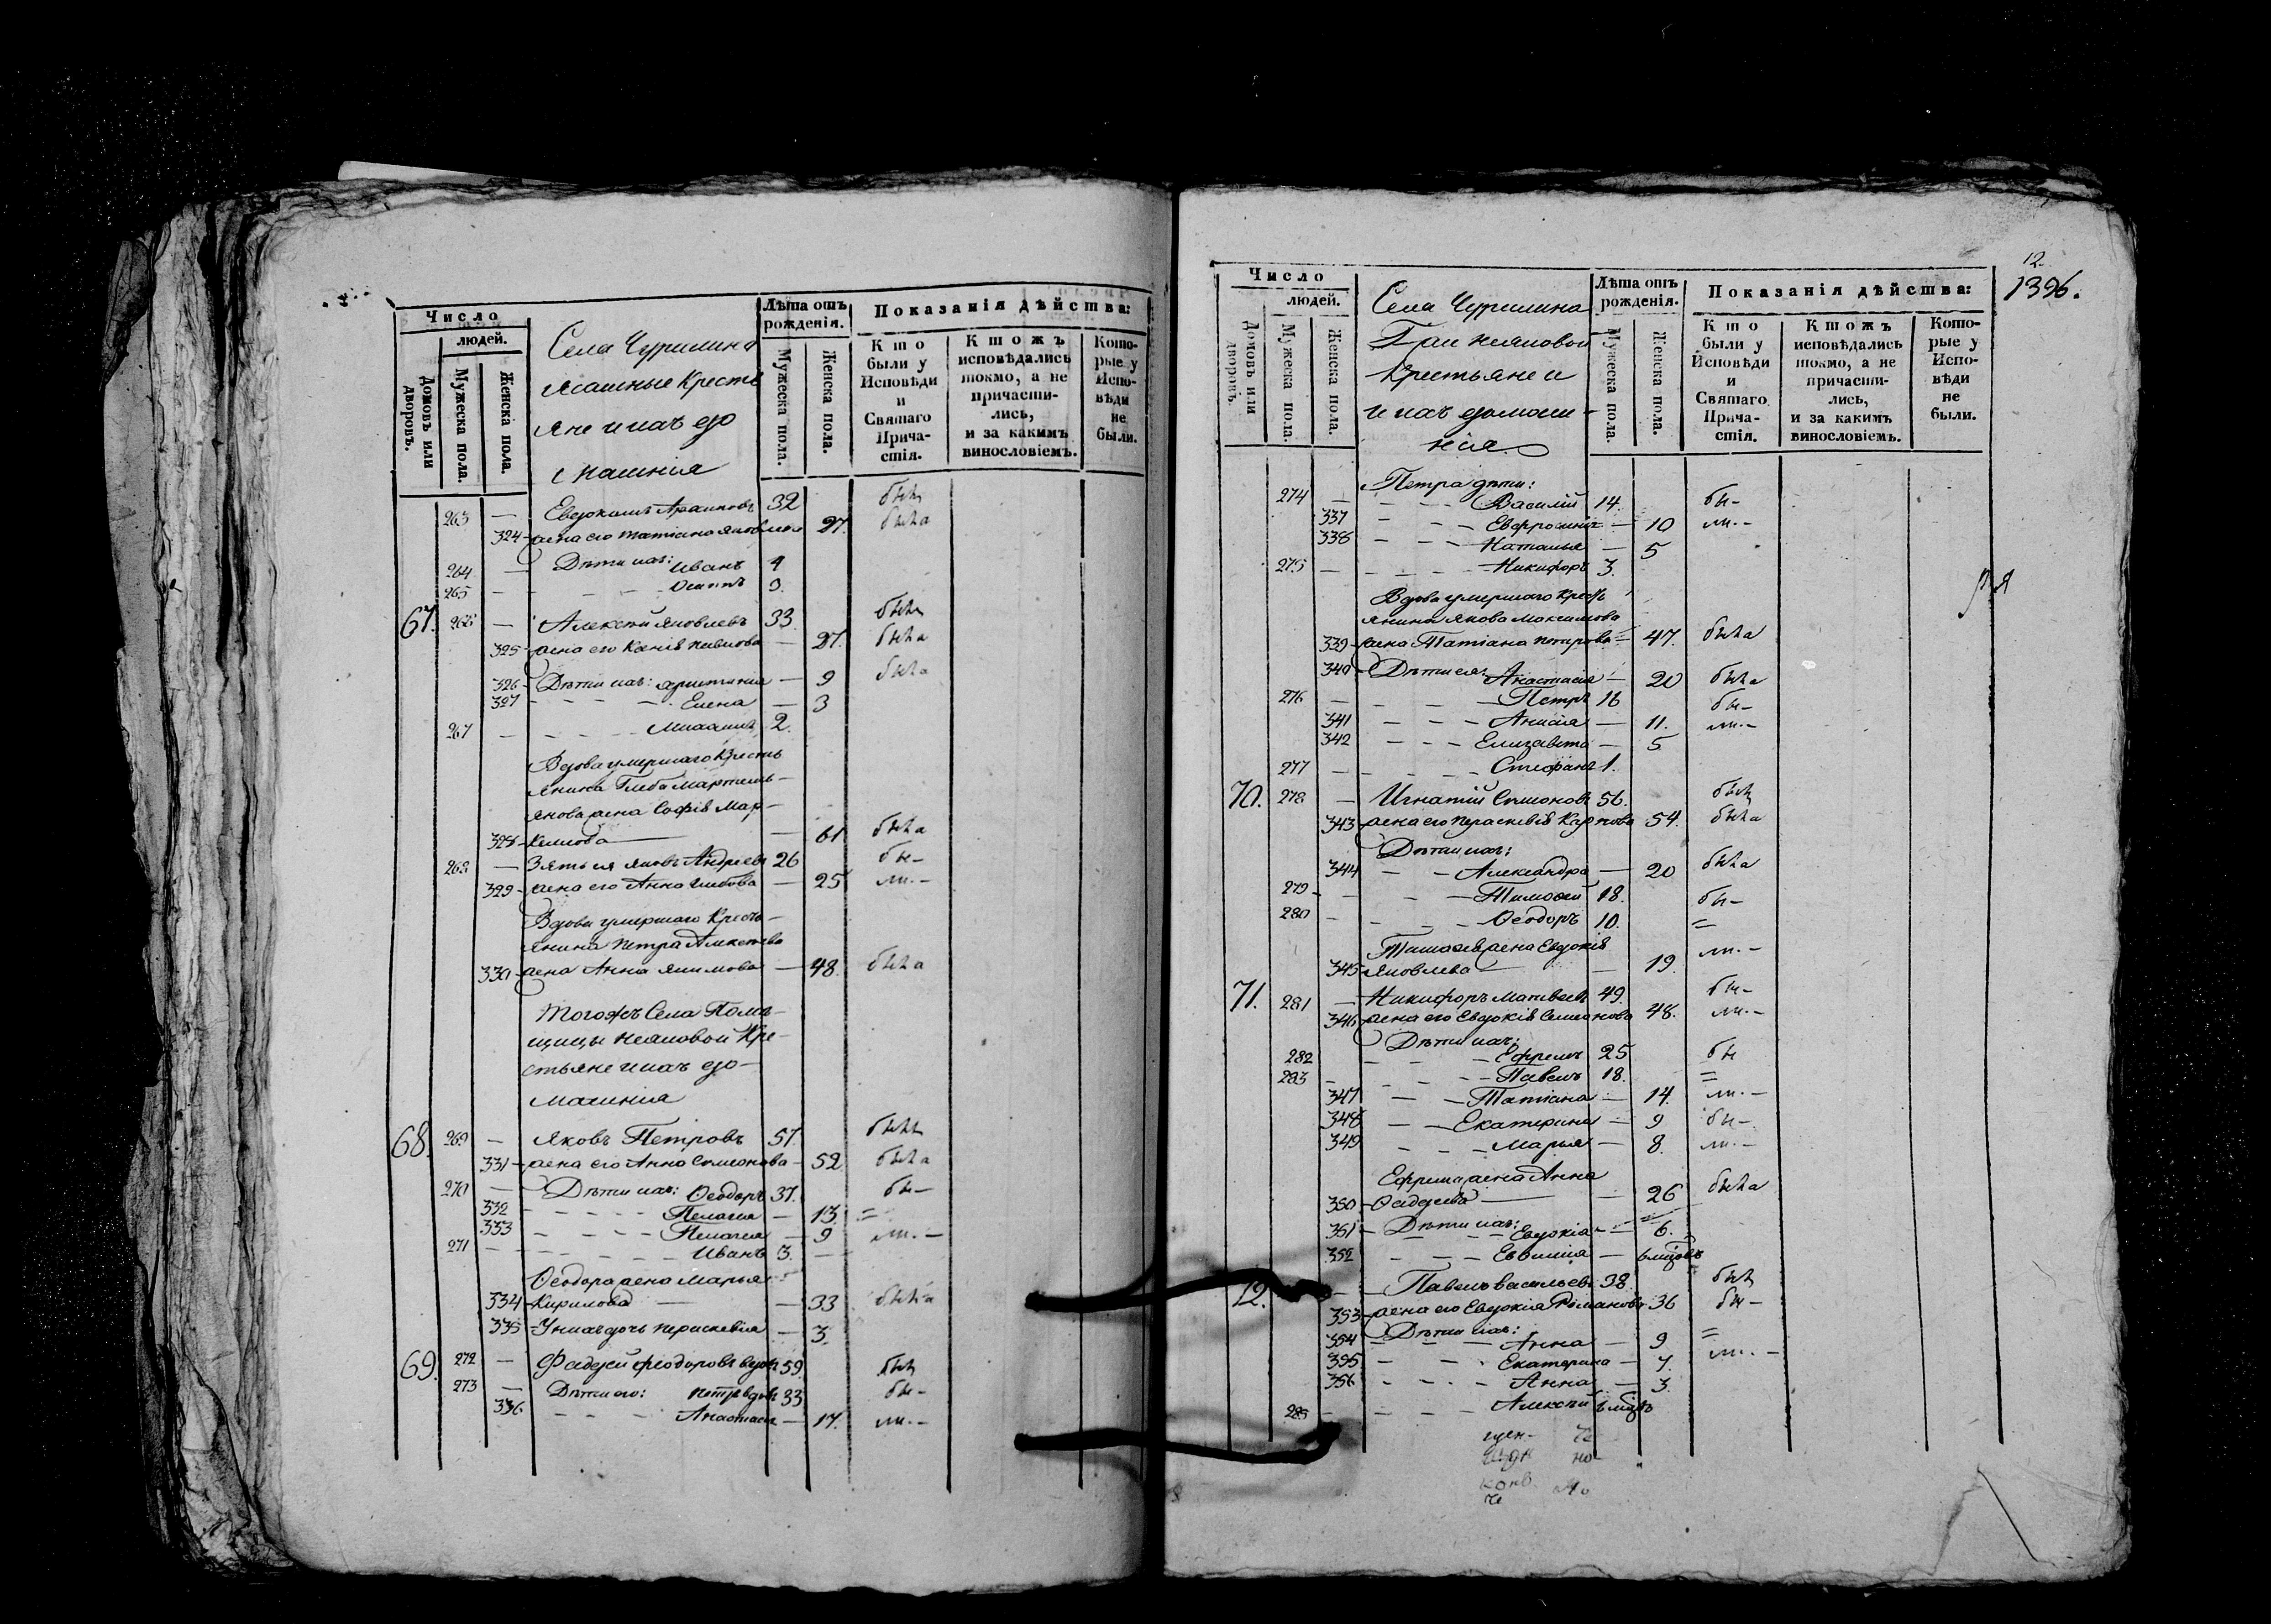 Число
людей.
Домовъ или дворовъ.
Мужеска пола.
Женска пола.
Села Чурилина
ясашные Кресть
яне и ихъ до
машнія
Лѣта отъ рожденія.
Мужеска пола.
Женска пола.
Показанія дѣйства:
Кто были у Исповѣди и Святаго Причастія.
Ктожъ исповѣдались токмо, а не причастились, и за какимъ винословіемъ.
Которые у Исповѣди не были.
263 — Евдокимъ 32 былъ
324 — жена его Татіана Яковлева 27. былa
264 — Дѣти ихъ: Иванъ 4
265 — Осипъ 3
67. 266 — Алексѣй Яковлевъ 33. былъ
325 — жена его — 27. была
326 — Дѣти ихъ: Христинія — 9 была
327 — Елена — 3
267 — Михаилъ 2.
Вдова умершаго Кресть
янина Глѣба Мартемь—
янова жена Софія Мар—
328 — келова — 61 была
268 — Зять ея Яковъ Андреевъ 26 бы—
329 — жена его Анна Глебова — 25 ли.—
Вдова умершаго Кресть—
янина Петра Алексѣева
330 — жена Анна Якимова — 48. была
Тогожъ Села Помѣ—
щицы Нееловой Кре—
стьяне и ихъ до—
машнія
68. 269 — Яковъ Петровъ 57. былъ
331 — жена его Анна Симеонова — 52. была
270 — Дѣти ихъ: Ѳеодоръ 37. бы—
332 — Пелагея — 13. =
333 — Пелагея — 9 ли.—
271 — Иванъ 3.
Ѳеодора жена Марья
334 — Кирилова — 33 была
335 — У нихъ дочь Параскевія — 3.
69. 272 — Фадей Феодоровъ вдовъ 59. былъ
273 — Дѣти его: Петръ вдовъ 33 бы—
336 — Анастасія — 17. ли.—
12.
1396.
Число
людей.
Домовъ или дворовъ.
Мужеска пола.
Женска пола.
Села Чурилина
Г-жи Нееловой
Крестьяне и
и ихъ домаш—
нія
Лѣта отъ рожденія.
Мужеска пола.
Женска пола.
Показанія дѣйства:
Кто были у Исповѣди и Святаго Причастія.
Ктожъ исповѣдались токмо, а не причастились, и за какимъ винословіемъ.
Которые у Исповѣди не были.
Петра дѣти:
274 — Василій 14. бы—
337 — Евфросинія — 10 ли.—
338 — Наталья — 5
275 — Никифоръ 3.
Вдова умершаго Кресть
янина Якова Максимова
339 — жена Татіана Петрова — 47. была
340 — Дѣти ея: Анастасія — 20 была
276 — Петръ 16 бы—
341 — Анисія — 11. ли.—
342 — Елизавета — 5
277 — Стефанъ 1.
70. 278 — Игнатій Симоновъ 56. былъ
343 — жена его Параскевія Карпова 54. была
Дѣти ихъ:
344 — Александра — 20 была
279 — Тимоѳей 18. бы—
280 — Ѳеодоръ 10. =
Тимоѳея жена Евдокія
345 — Яковлева — 19. ли.—
71. 281 — Никифоръ Матвеевъ 49. бы—
346 — жена его Евдокія Семеонова 48. ли.—
Дѣти ихъ:
282 — Ефремъ 25 бы
283 — Павелъ 18. =
347 — Татіана — 14. ли.—
348 — Екатерина — 9 бы—
349 — Марья — 8. ли.—
Ефрема жена Анна
350 — Ѳадеева — 26 была
351 — Дѣти ихъ: Евдокія — 6.
352 — Евѳимія —
72. — Павелъ Васильевъ 38. былъ
353 — жена его Евдокія Романова 36 бы—
Дѣти ихъ:
354 — Анна — 9 =
355 — Екатерина — 7. ли.—
356 — Анна — 3.
285 — Алексѣй